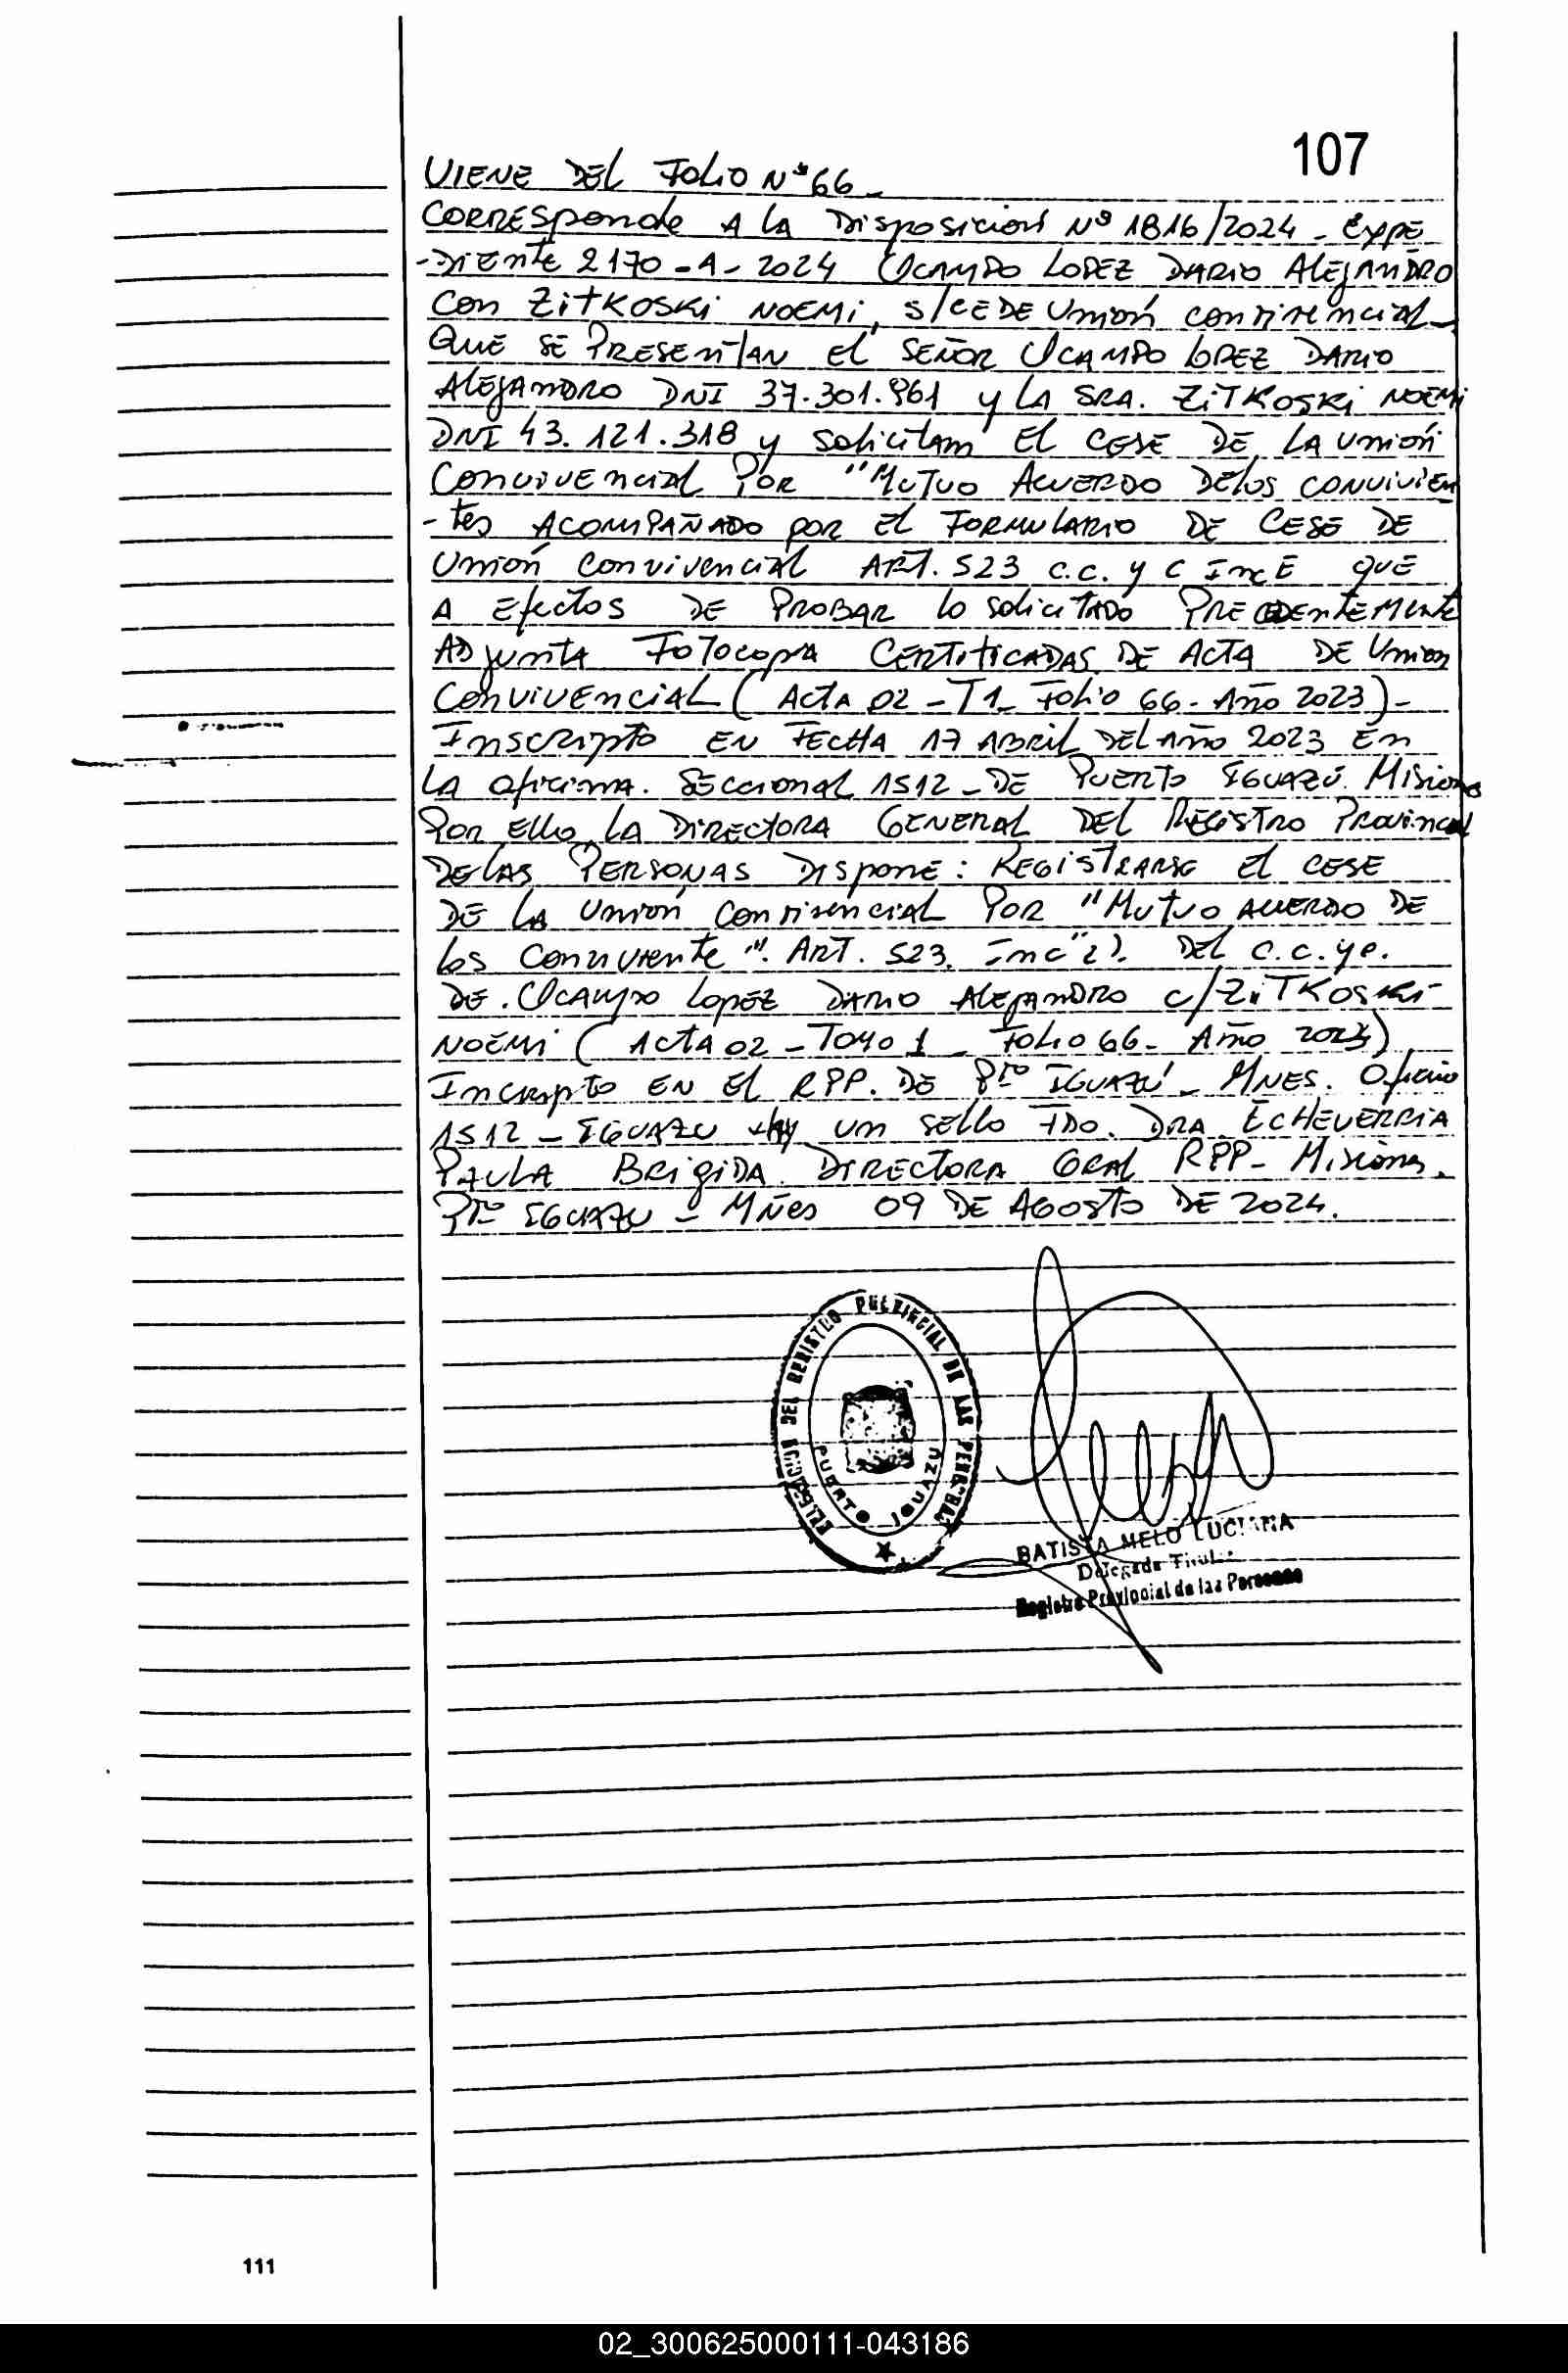 107
VIENE DEL FOLIO Nº 66_
CORRESponde A LA Disposicion Nº 1816/2024 - Expe
-Diente 2170-A-2024 OCAMPO LOPEZ DARIO ALEJANDRO
Con ZITKOSKI NOEMI, S/CEDE Unión convivencial_
QUE SE PRESENTAN El SEÑOR OCAMPO LOPEZ DARIO
ALEJANDRO DNI 37.301.961 y LA SRA. ZITKOSKI NOEMI
DNI 43.121.318 y solicitan El CESE DE LA unión
Convivencial Por "MUTUO ACUERDO Delos CONVIVIEN
-tes ACOMPAÑADO por El FORMULARIO DE CESE DE
Unión Convivencial ART. 523 c.c. y C Inc E que
A Efectos DE PROBAR lo SoliciTADO PRECEDENTEMENTE
ADjunta Fotocopia CERTIFICADAS DE ACTA DE Union
CONVIVENCIAL (Acta 02 - T1_ Folio 66 - Año 2023)-
Inscripto EN FECHA 17 ABRIL DEL AÑO 2023 En
LA oficina. SEccional 1512 - DE PUERTO IGUAZÚ. Misiones
Por Ello, LA DIRECTORA GENERAL DEL REGISTRO Provincial
DE LAS PERSONAS Dispone: REGISTRARSE El CESE
DE LA Unión Convivencial Por "Mutuo ACUERDO DE
los Conviviente". ART. 523. Inc "2). DEL c.c.yc.
DE. OCAMPO Lopez DARIO ALEJANDRO c/ZITKOSKI-
NOEMI (ACTA 02 - TOMO 1 _ Folio 66 - Año 2023)
Incripto EN El RPP. DE Pto IGUAZÚ - MNES. Oficina
1512 - IGUAZU Hay un sello FDO. DRA ECHEVERRIA
PAULA BRIGIDA. DIRECTORA GRAL RPP - Misiones.
Pto IGUAZU - MÑes 09 DE AGOSTO DE 2024.
DELEGACION DEL REGISTRO PROVINCIAL DE LAS PERSONAS
PUERTO IGUAZU
BATISTA MELO LUCIANA
Delegada Titular
Registro Provincial de las Personas
111
02_300625000111-043186